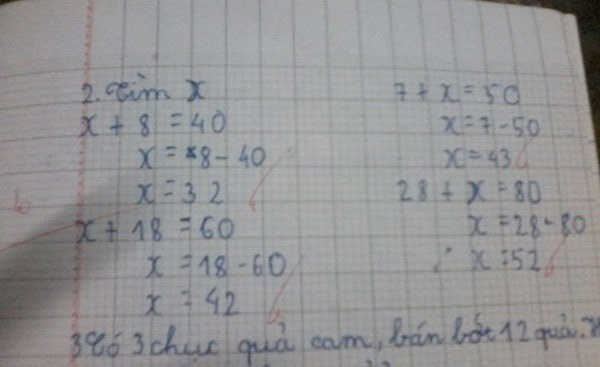 2. Tìm x
x + 8 = 40
x = 8 - 40
x = 32
x + 18 = 60
x = 18 - 60
x = 42
7 + x = 50
x = 7 - 50
x = 43
28 + x = 80
x = 28 - 80
x = 52
3 Có 3 chục quả cam, bán bớt 12 quả.